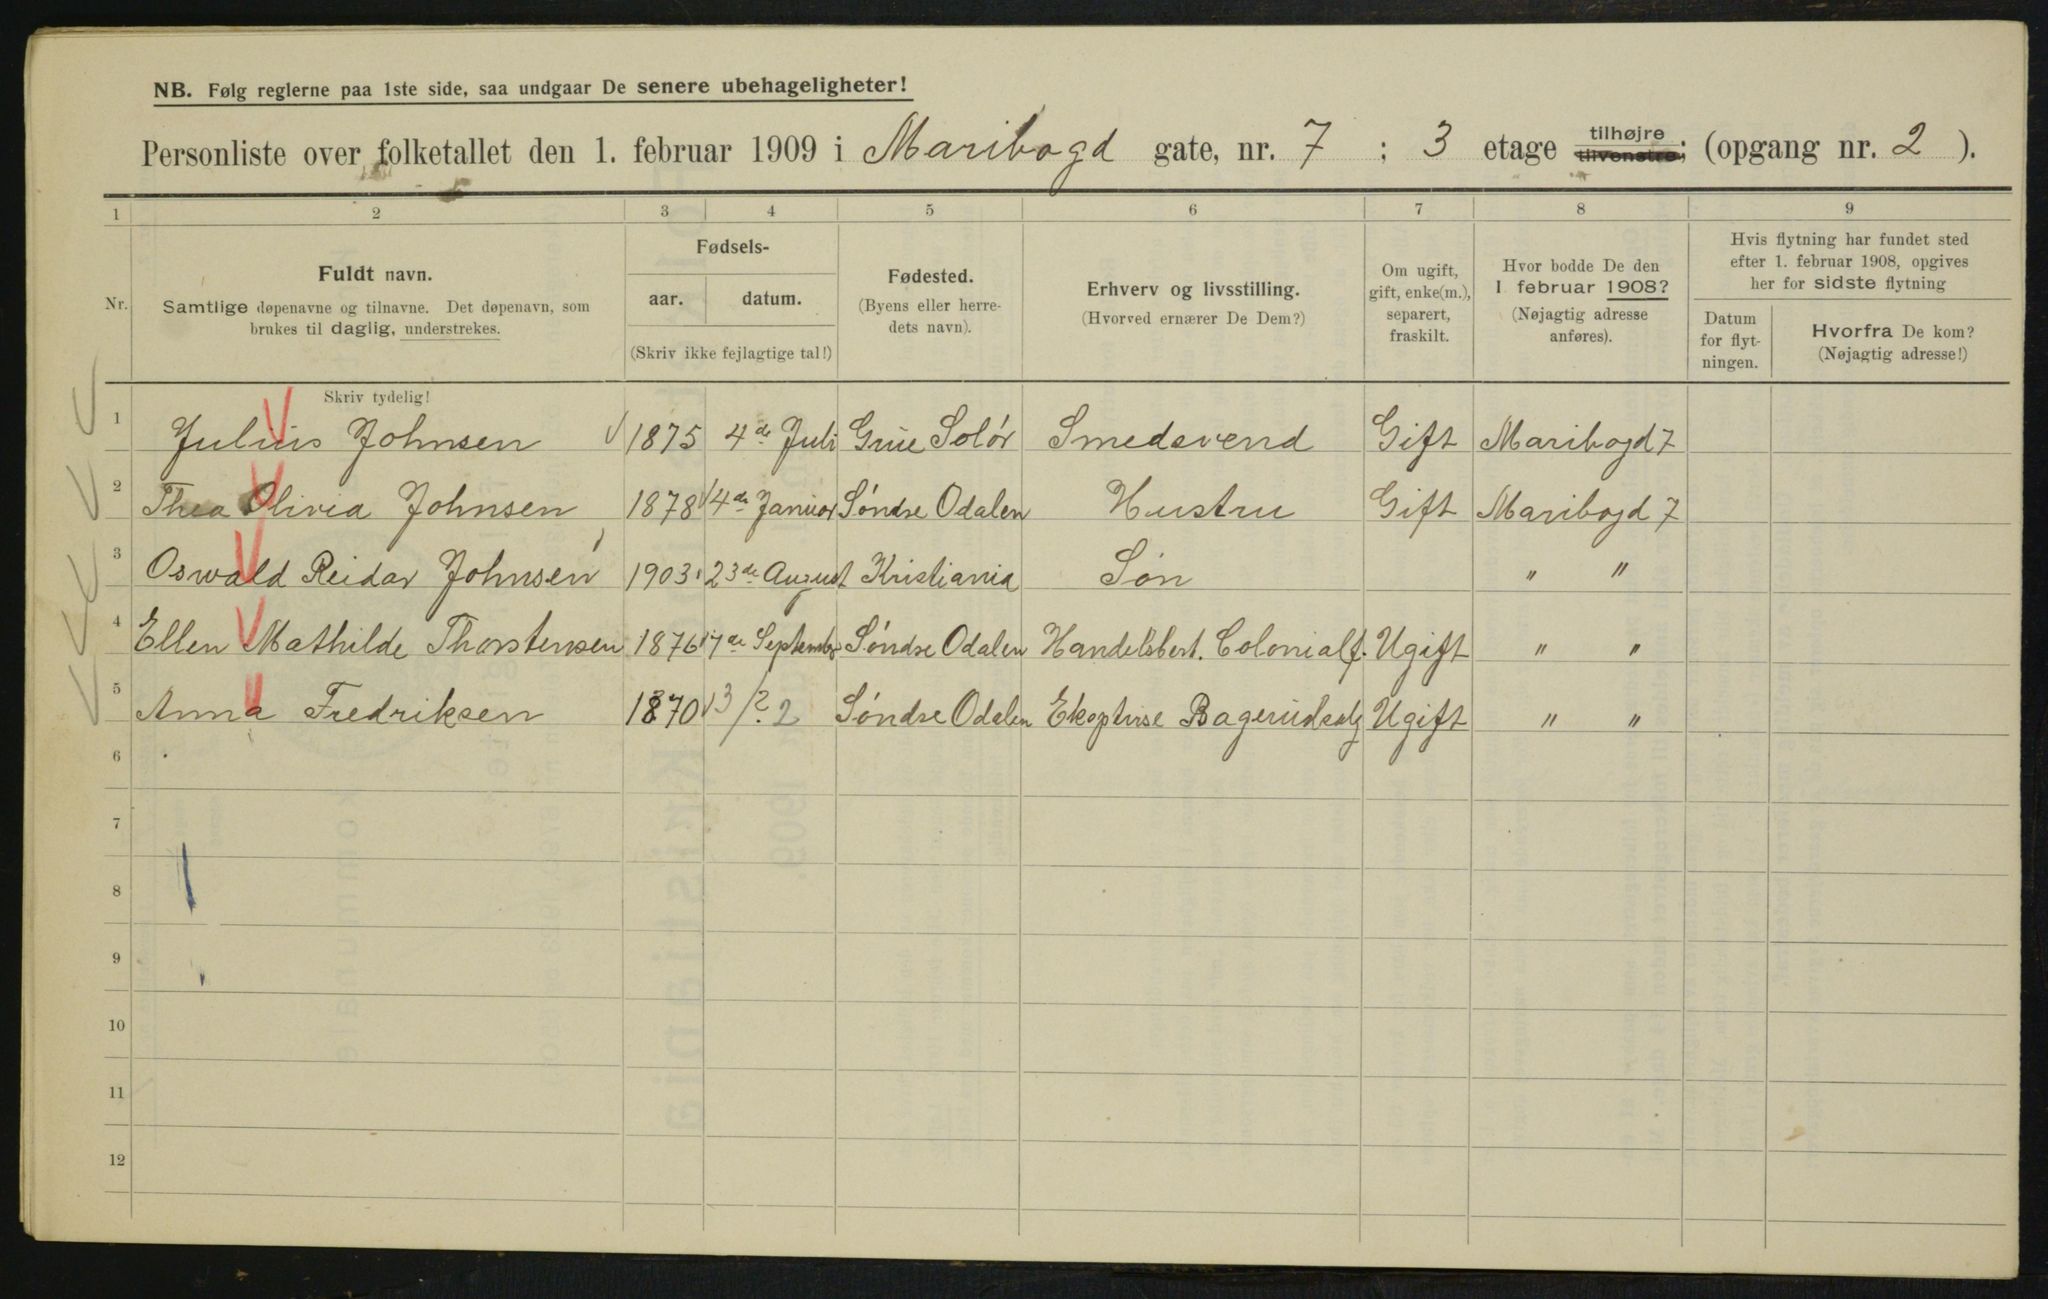 NB. Følg reglerne paa 1ste side, saa undgaar De senere ubehageligheter!
Personliste over folketallet den 1. februar 1909 i Maribogd gate, nr. 7 ; 3 etage tilhøjre tilvenstre; (opgang nr. 2 ).
1 2 3 4 5 6 7 8 9
Nr.
Fuldt navn.
Samtlige døpenavne og tilnavne. Det døpenavn, som
brukes til daglig, understrekes.
Fødsels-
aar. datum.
(Skriv ikke fejlagtige tal!)
Fødested.
(Byens eller herre-
dets navn).
Erhverv og livsstilling.
(Hvorved ernærer De Dem?)
Om ugift,
gift, enke(m.),
separert,
fraskilt.
Hvor bodde De den
1 februar 1908?
(Nøjagtig adresse
anføres).
Hvis flytning har fundet sted
efter 1. februar 1908, opgives
her for sidste flytning
Datum
for flyt-
ningen.
Hvorfra De kom?
(Nøjagtig adresse!)
Skriv tydelig!
1 Julius Johnsen 1875 4de Juli Grue Solør Smedsvend Gift Maribogd 7
2 Thea Olivia Johnsen 1878 4de Januar Søndre Odalen Hustru Gift Maribogd 7
3 Oswald Reidar Johnsen 1903 23de August Kristiania Søn " "
4 Ellen Mathilde Thorstensen 1876 7de September Søndre Odalen Handelsbest. Colonialf. Ugift " "
5 Anna Fredriksen 1870 13/2 2 Søndre Odalen Bagerudsalg Ugift " "
6
7
8
9
10
11
12